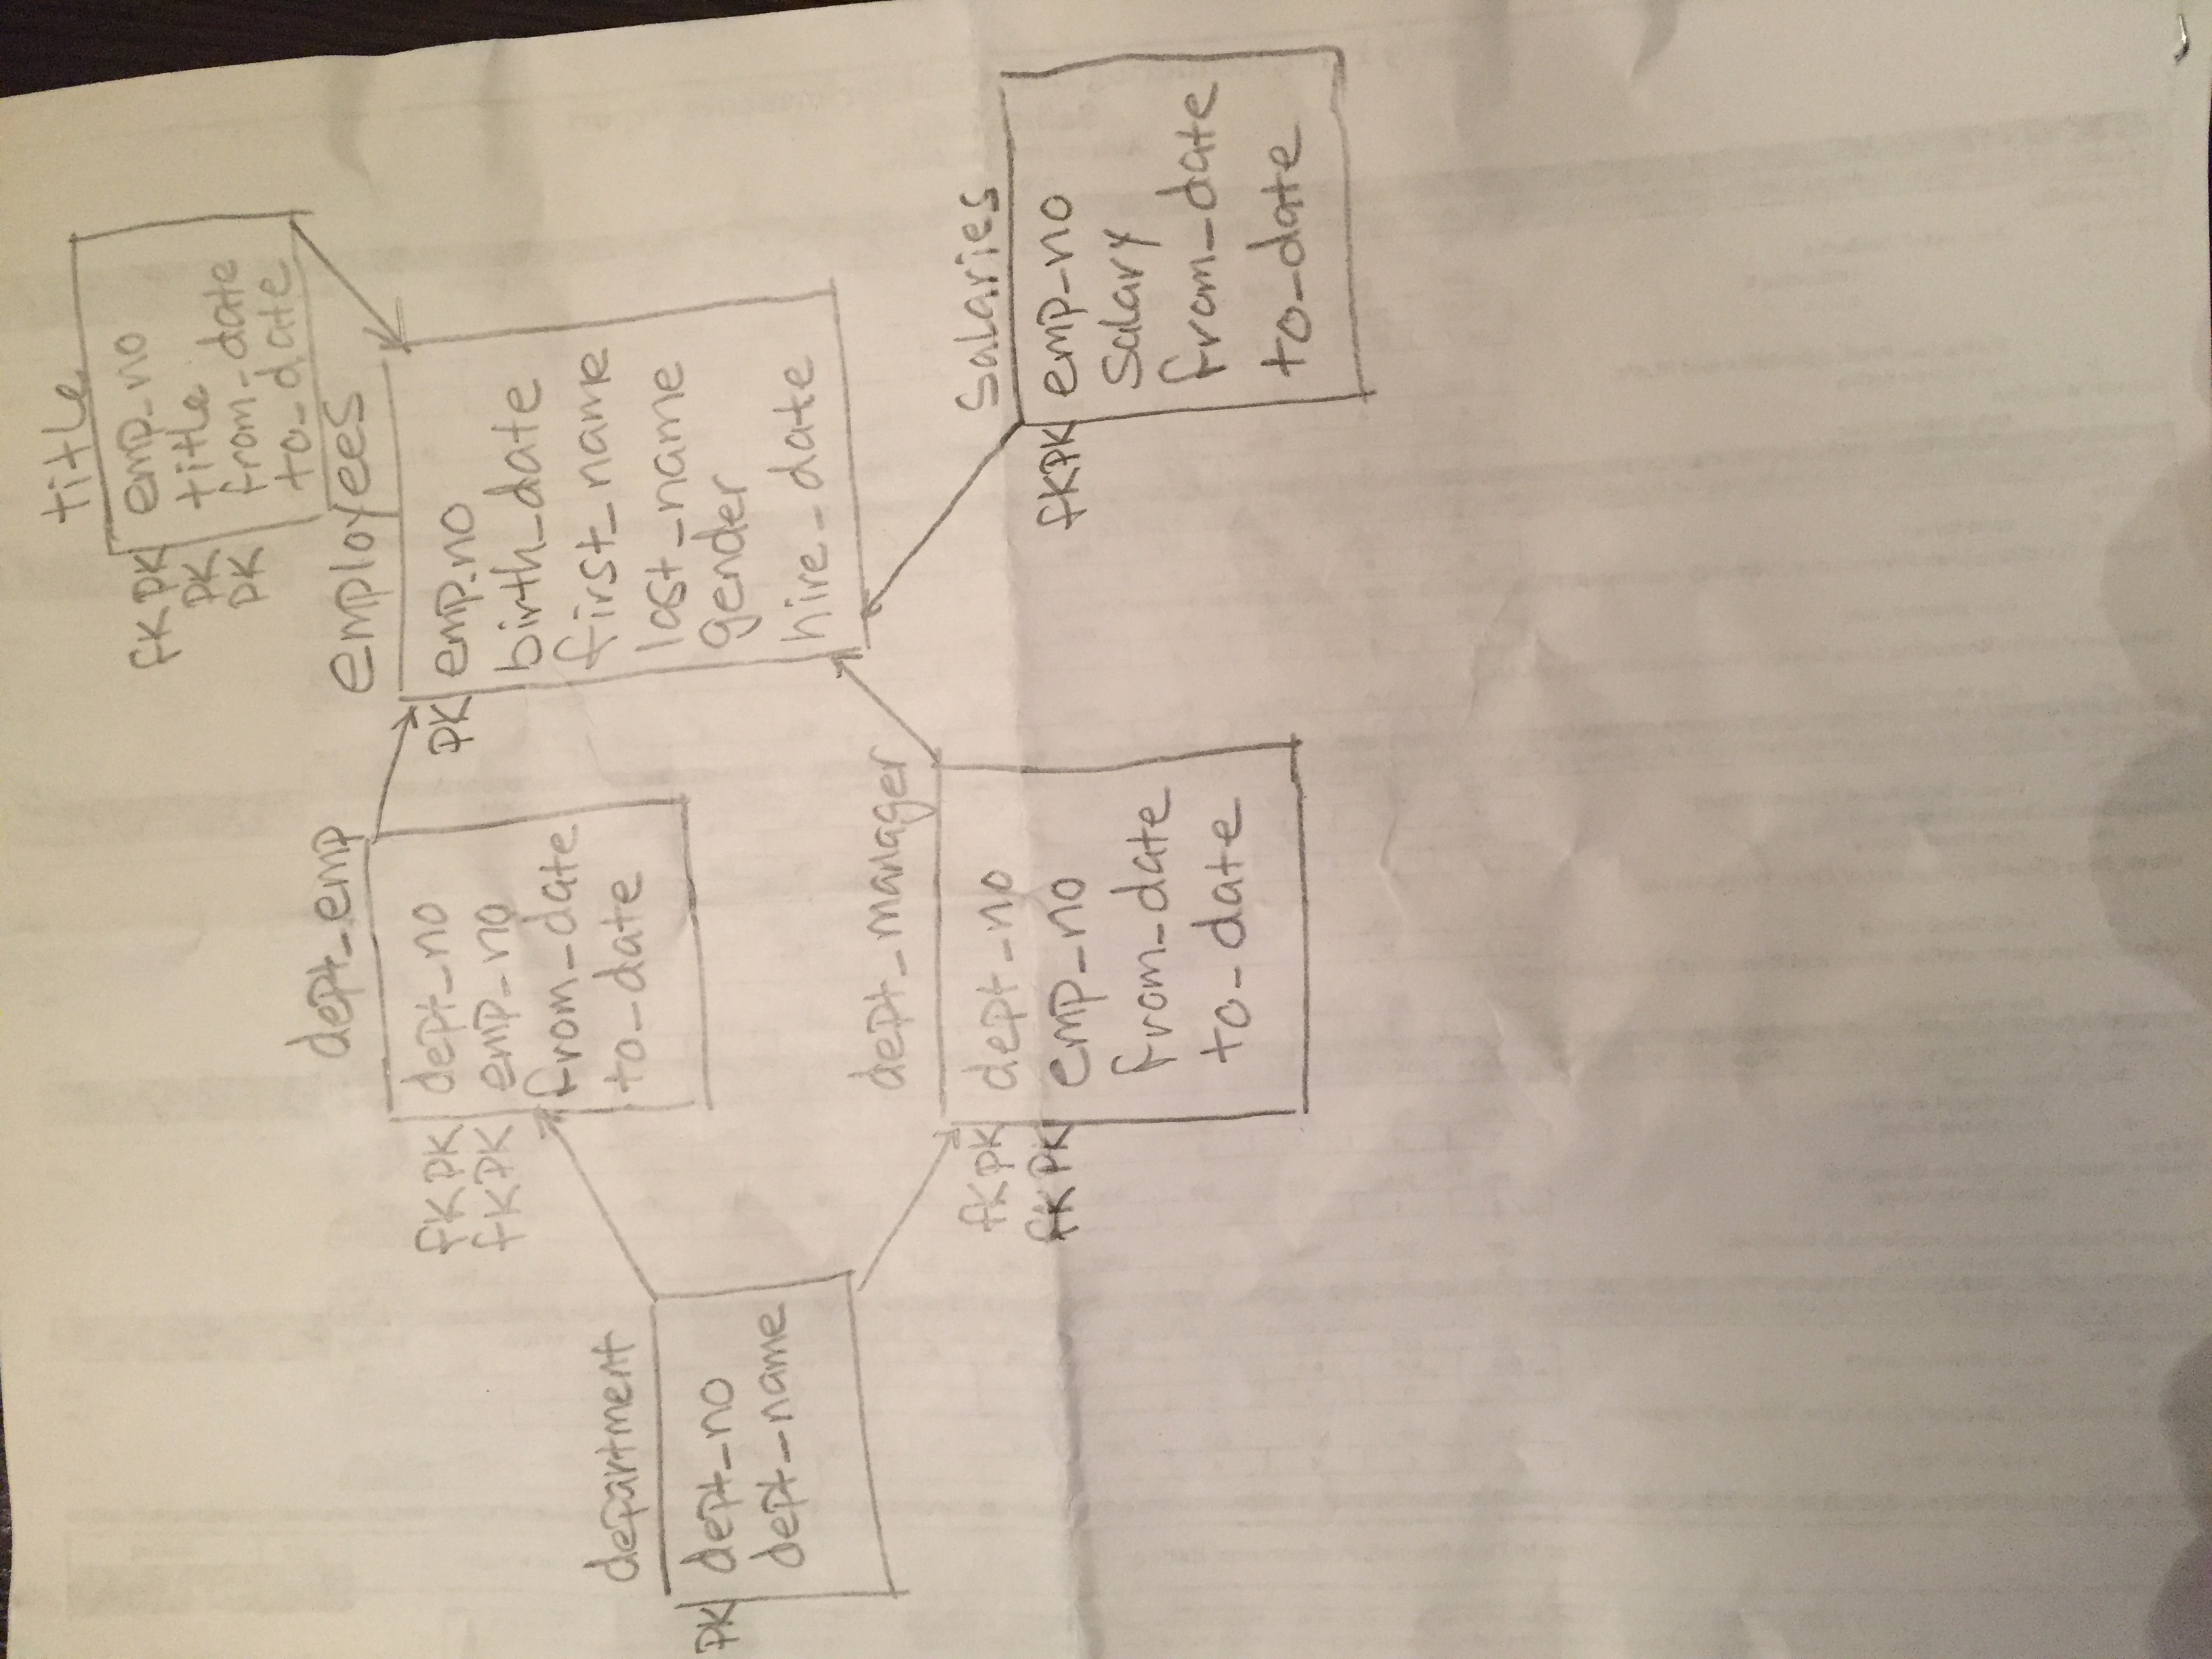 title
FK PK emp_no
PK title
PK from_date
to_date
dept_emp
FK PK dept_no
FK PK emp_no
from_date
to_date
employees
PK emp.no
birth_date
first_name
last_name
gender
hire_date
department
PK dept_no
dept_name
dept_manager
FK PK dept_no
FK PK emp_no
from_date
to_date
Salaries
FK PK emp_no
Salary
from_date
to_date